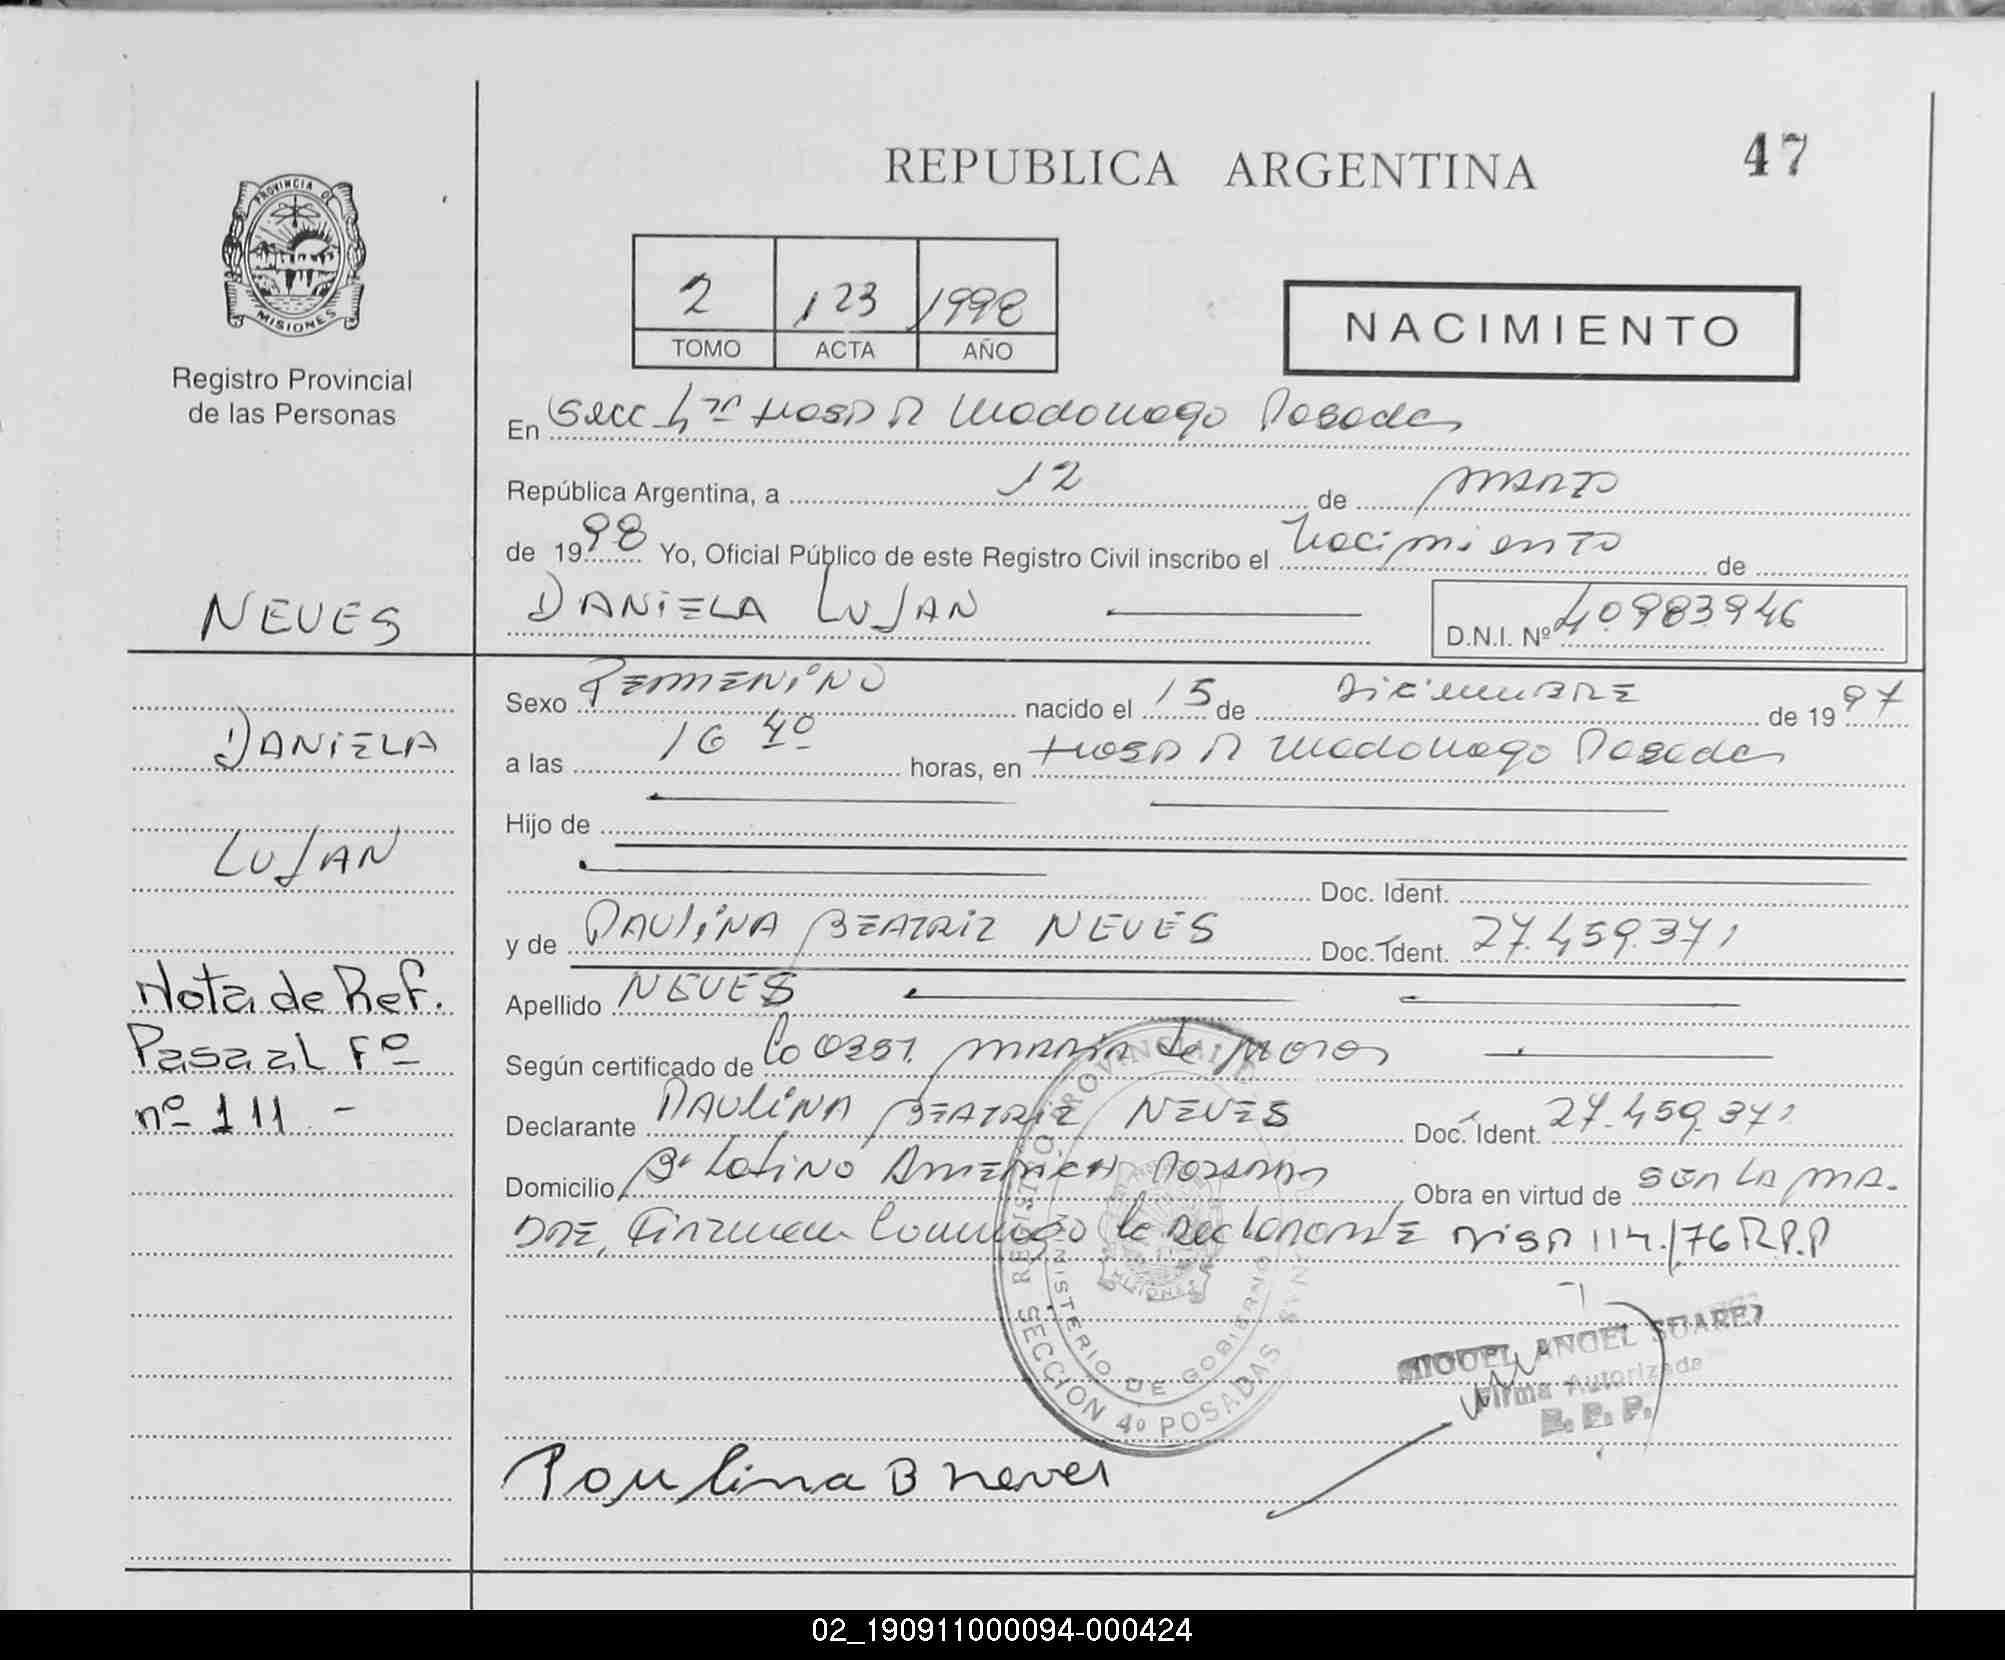 REPUBLICA ARGENTINA
47
PROVINCIA DE
MISIONES
Registro Provincial
de las Personas
2 123 1998
TOMO ACTA AÑO
NACIMIENTO
En Secc 4ta Hosp R Madonago Posadas
República Argentina, a 12 de MARZO
de 1998 Yo, Oficial Público de este Registro Civil inscribo el Nacimiento de
NEVES
DANIELA LUJAN
D.N.I. Nº 40983946
Sexo FEMMENINO nacido el 15 de DICIEMBRE de 1997
DANIELA
a las 16 40 horas, en Hosp R Madonago Posadas
Hijo de
LUJAN
Doc. Ident.
y de PAULINA BEATRIZ NEVES Doc. Ident. 27.459.371
Nota de Ref.
Pasa al Fº
nº 111 -
Apellido NEVES
Según certificado de la Obst. MARIA de
Declarante PAULINA BEATRIZ NEVES Doc. Ident. 27.459.371
Domicilio Bº Latino AMERICA POSADAS Obra en virtud de SER LA MA.
DRE, Firman Conmigo la Declarante DISP 114./76 R.P.P
REGISTRO PROVINCIAL DE
MINISTERIO DE GOBIERNO
SECCION 4º POSADAS
MISIONES
MIGUEL ANGEL SUAREZ
Firma Autorizada
R. P. P.
Paulina B Neves
02_190911000094-000424